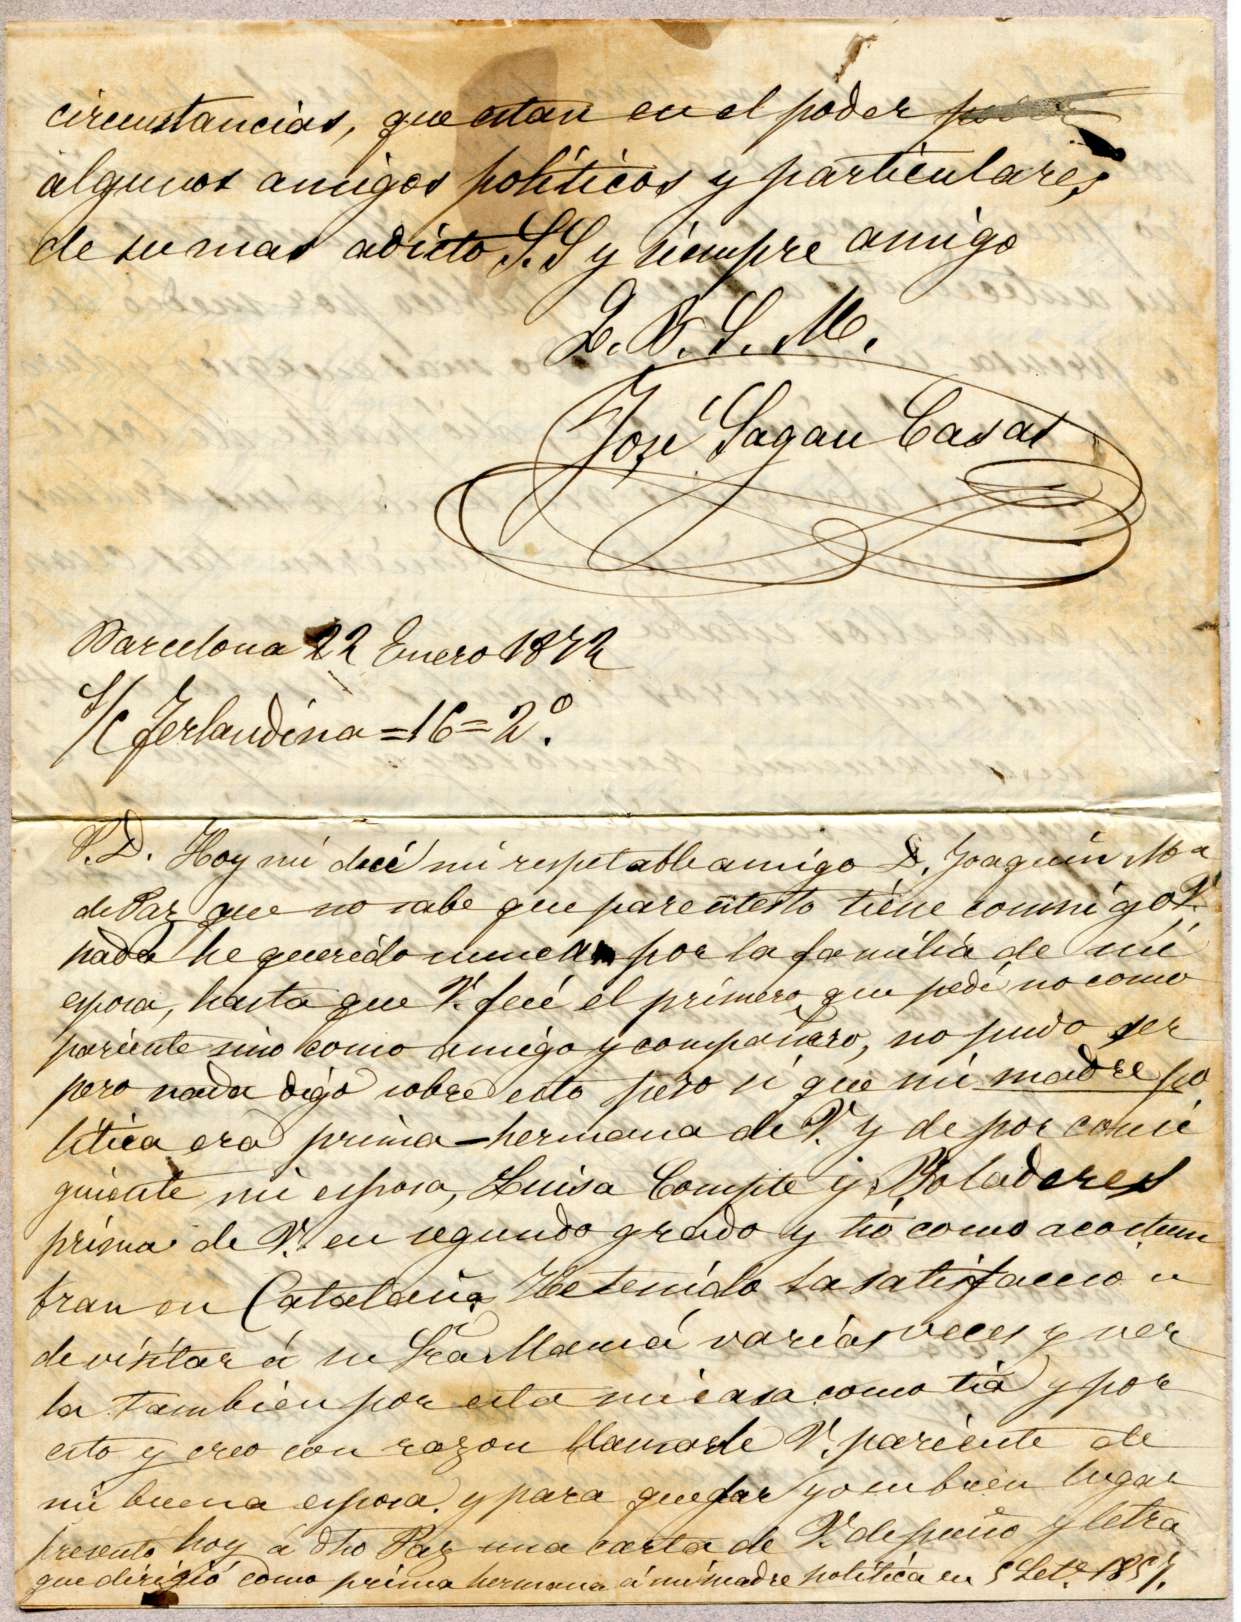 circunstancias, que estan en el poder
algunos amigos políticos y particulares,
de su mas adicto S.S y siempre amigo
Q. B. S. M.
José Sagau Casas
Barcelona 22 Enero 1872
S/C Ferlandina = 16 = 2º.
P.D. Hoy mé decé mi respetable amigo D. Joaquin Mª
de Paz que no sabe que parentesto tiene conmígo V.
nada he querido nunca por la família de mi
esposa, hasta que V. fué el prímero que pedí no como
pariente sino como amigo y compañero, no pudo ser
pero nada dígo sobre esto pero sí que mi madre po
lítica era prima-hermana de V. y de por consi
guiente mi esposa, Luisa Compte y Boladeres
príma de V. en segundo grado y tió como acostum
bran en Cataluña. He tenído la satisfaccion
de visítar á su Sra Mamá varías veces y ver
la tambien por esta mi casa como tiá y por
esto y creo con razon llamarle V. pariente de
mi buena esposa. y para quedar yo en buen lugar
presento hoy á dho Paz una carta de V. de puño y letra
que dirigíó como prima hermana á mi madre política en 5 Set.e 1857.